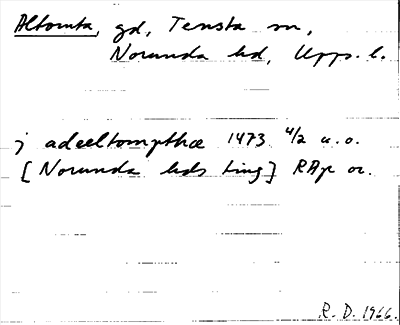 Altomta, gd, Tensta sn,
Norunda hd, Upps. l.
j adeeltompthæ 1473 4/2 u.o.
[Norunda hds ting] RAp or.
R. D. 1966.